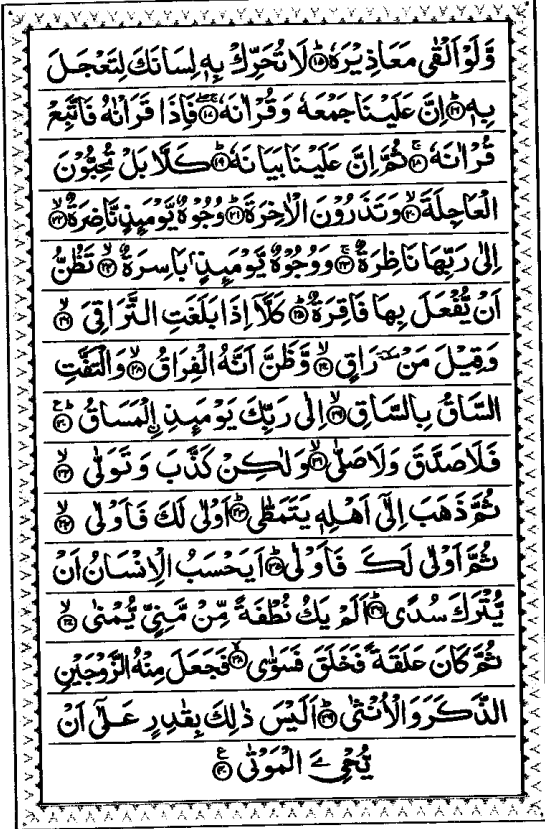 وَّلَوْ اَلْقٰى مَعَاذِيْرَهٗ ؕ﴿۱۵﴾ لَا تُحَرِّكْ بِهٖ لِسَانَكَ لِتَعْجَلَ
بِهٖ ؕ﴿۱۶﴾ اِنَّ عَلَيْنَا جَمْعَهٗ وَ قُرْاٰنَهٗ ۚۖ﴿۱۷﴾ فَاِذَا قَرَاْنٰهُ فَاتَّبِعْ
قُرْاٰنَهٗ ۚ﴿۱۸﴾ ثُمَّ اِنَّ عَلَيْنَا بَيَانَهٗ ؕ﴿۱۹﴾ كَلَّا بَلْ تُحِبُّوْنَ
الْعَاجِلَةَ ۙ﴿۲۰﴾ وَ تَذَرُوْنَ الْاٰخِرَةَ ؕ﴿۲۱﴾ وُجُوْهٌ يَّوْمَىِٕذٍ نَّاضِرَةٌ ۙ﴿۲۲﴾
اِلٰى رَبِّهَا نَاظِرَةٌ ۚ﴿۲۳﴾ وَ وُجُوْهٌ يَّوْمَىِٕذٍۭ بَاسِرَةٌ ۙ﴿۲۴﴾ تَظُنُّ
اَنْ يُّفْعَلَ بِهَا فَاقِرَةٌ ؕ﴿۲۵﴾ كَلَّاۤ اِذَا بَلَغَتِ التَّرَاقِيَ ۙ﴿۲۶﴾
وَ قِيْلَ مَنْ سكتة رَاقٍ ۙ﴿۲۷﴾ وَّ ظَنَّ اَنَّهُ الْفِرَاقُ ۙ﴿۲۸﴾ وَ الْتَفَّتِ
السَّاقُ بِالسَّاقِ ۙ﴿۲۹﴾ اِلٰى رَبِّكَ يَوْمَىِٕذِ ِ۟الْمَسَاقُ ؕ﴿۳۰﴾
فَلَا صَدَّقَ وَ لَا صَلّٰى ۙ﴿۳۱﴾ وَ لٰكِنْ كَذَّبَ وَ تَوَلّٰى ۙ﴿۳۲﴾
ثُمَّ ذَهَبَ اِلٰۤى اَهْلِهٖ يَتَمَطّٰى ؕ﴿۳۳﴾ اَوْلٰى لَكَ فَاَوْلٰى ۙ﴿۳۴﴾
ثُمَّ اَوْلٰى لَكَ فَاَوْلٰى ؕ﴿۳۵﴾ اَيَحْسَبُ الْاِنْسَانُ اَنْ
يُّتْرَكَ سُدًى ؕ﴿۳۶﴾ اَلَمْ يَكُ نُطْفَةً مِّنْ مَّنِيٍّ يُّمْنٰى ۙ﴿۳۷﴾
ثُمَّ كَانَ عَلَقَةً فَخَلَقَ فَسَوّٰى ۙ﴿۳۸﴾ فَجَعَلَ مِنْهُ الزَّوْجَيْنِ
الذَّكَرَ وَ الْاُنْثٰى ؕ﴿۳۹﴾ اَلَيْسَ ذٰلِكَ بِقٰدِرٍ عَلٰۤى اَنْ
يُّحْيِۦَ الْمَوْتٰى ﴿۴۰﴾ ع